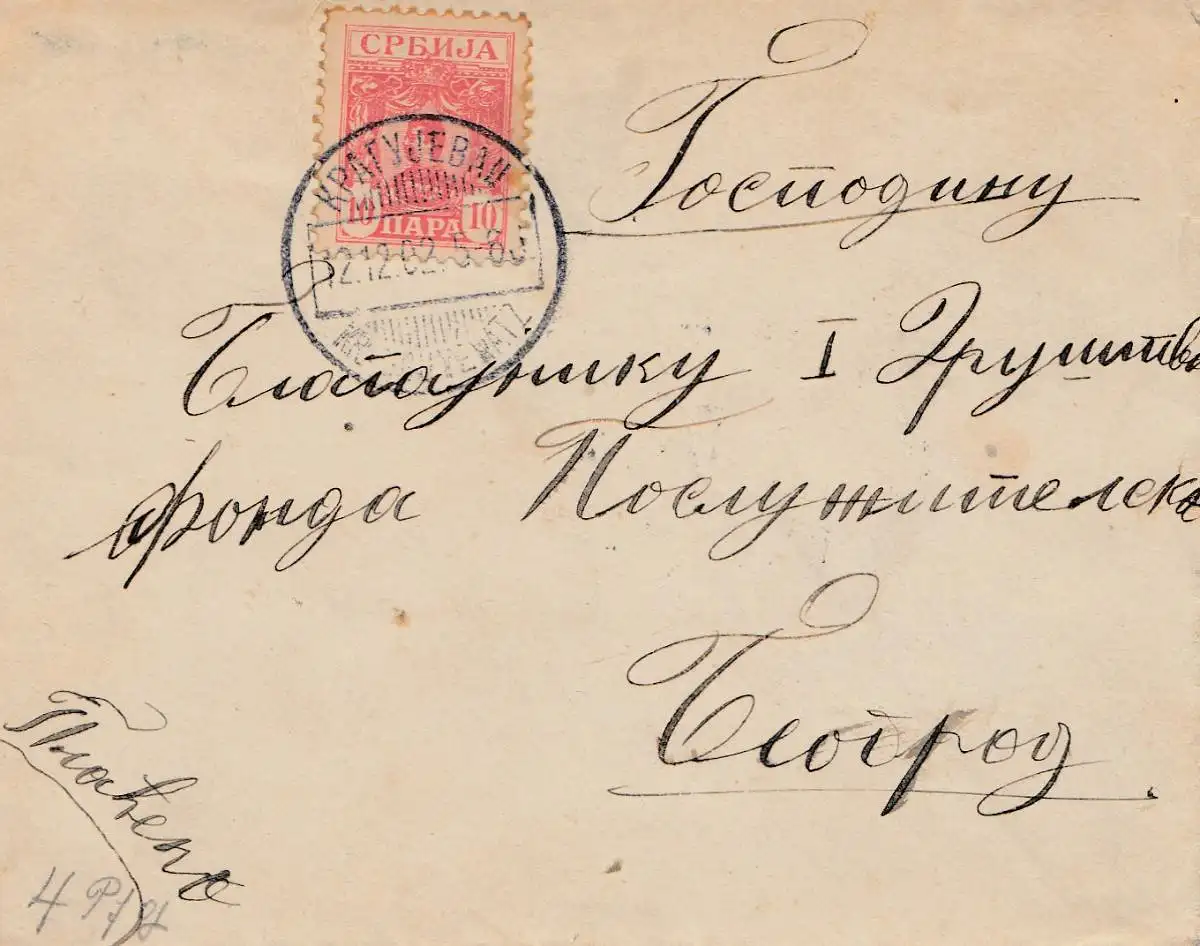 СРБИЈА
10 10
ПАРА
КРАГУЈЕВАЦ
12.12.02.5-8
Господину
Благајнику I Друштв
фонда Послужителск
Београд.
Плаћено
4